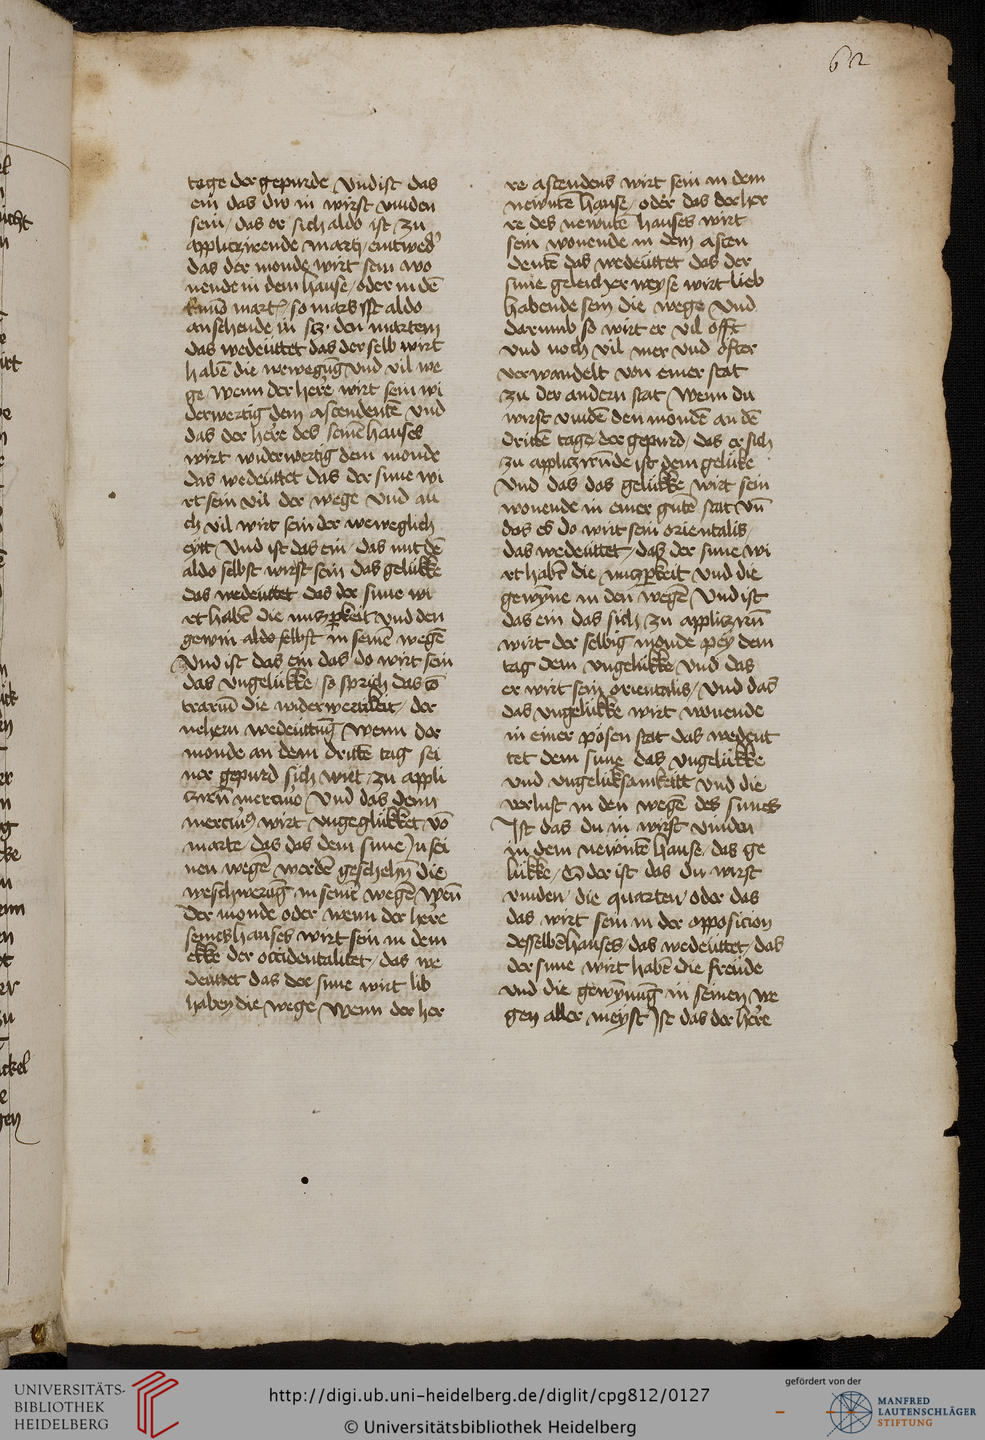 62
tage der gepurde Vnd ist das
ein das dw in wirst vinden
sein / das er sich aldo ist zu
appliczirende marti / eintwed'
das der monde wirt sein wo
nende in dem hause / oder in dē
so mars ist aldo
ansehende in den martem
das wedeüttet das der selb wirt
habē die wewegūg vnd vil we
ge Wenn der here wirt sein wi
derwertig dem ascendentē vnd
das der here des seinē hauses
wirt widerwertig dem monde
das wedeüttet das der sune wi
rt sein vil der wege vnd au
ch vil wirt sein der weweglich
eytt Vnd ist das ein / das mit dē
aldo selbst wirst sein das gelükke
das wedeüttet das der sune wi
rt habē die nuczperkeit vnd den
gewin aldo selbst in seinē wegē
Vnd ist das ein das do wirt sein
das vngelükke / so sprich das cō
trariū die widerwertikeit / der
nehern wedeüttūg Wenn der
monde an dem drittē tag sei
ner gepurd sich wirt / zu appli
czirn mercurio Vnd das denn
mercurius wirt vngeglükket vō
marte / das das dem sune in sei
nen wegē werdē geschehn die
weschwerūg in seinē wegē Wen̄
der monde oder wenn der here
seines hauses wirt sein in dem
ekke der occidentalitet / das we
deüttet das der sune wirt lib
haben die wege Wenn der her
re ascendens wirt sein in dem
newntē hause / oder das der her
re des newntē hauses wirt
sein wonende in dem ascen
dentē das wedeüttet das der
sune geleicher weyse wirt lieb
habende sein die wege vnd
darumb so wirt er vil offt
vnd noch vil mer vnd öfter
verwandelt von einer stat
zu der andern stat Wenn du
wirst vindē den mondē an dē
drittē tage der gepurd / das er sich
zu appliczirnde ist dem gelüke
Vnd das das gelükke wirt sein
wonende in einer gutē stat vn̄
das es do wirt sein orientalis /
das wedeüttet / das der sune wi
rt habē die nuczperkeit vnd die
gewynne in den wegē Vnd ist
das ein das sich zu appliczirn
wirt der selbig monde pey dem
tag dem vngelükke vnd das
er wirt sein orientalis / vnd das
das vngelükke wirt wonende
in einer pösen stat das wedeut
tet dem sune das vngelükke
vnd vngelüksamkeitt vnd die
verlust in den wegē des sunes
Ist das du in wirst vinden
in dem newntē hause / das ge
lükke / Oder ist das du wirst
vinden / die quarten / oder das
das wirt sein in der opposicion
desselbē hauses / das wedeüttet / das
der sune wirt habē die freüde
vnd die gewynnūg in seinen we
gen aller meyst Ist das der here
UNIVERSITÄTS-
BIBLIOTHEK
HEIDELBERG
http://digi.ub.uni-heidelberg.de/diglit/cpg812/0127
© Universitätsbibliothek Heidelberg
gefördert von der
MANFRED
LAUTENSCHLÄGER
STIFTUNG